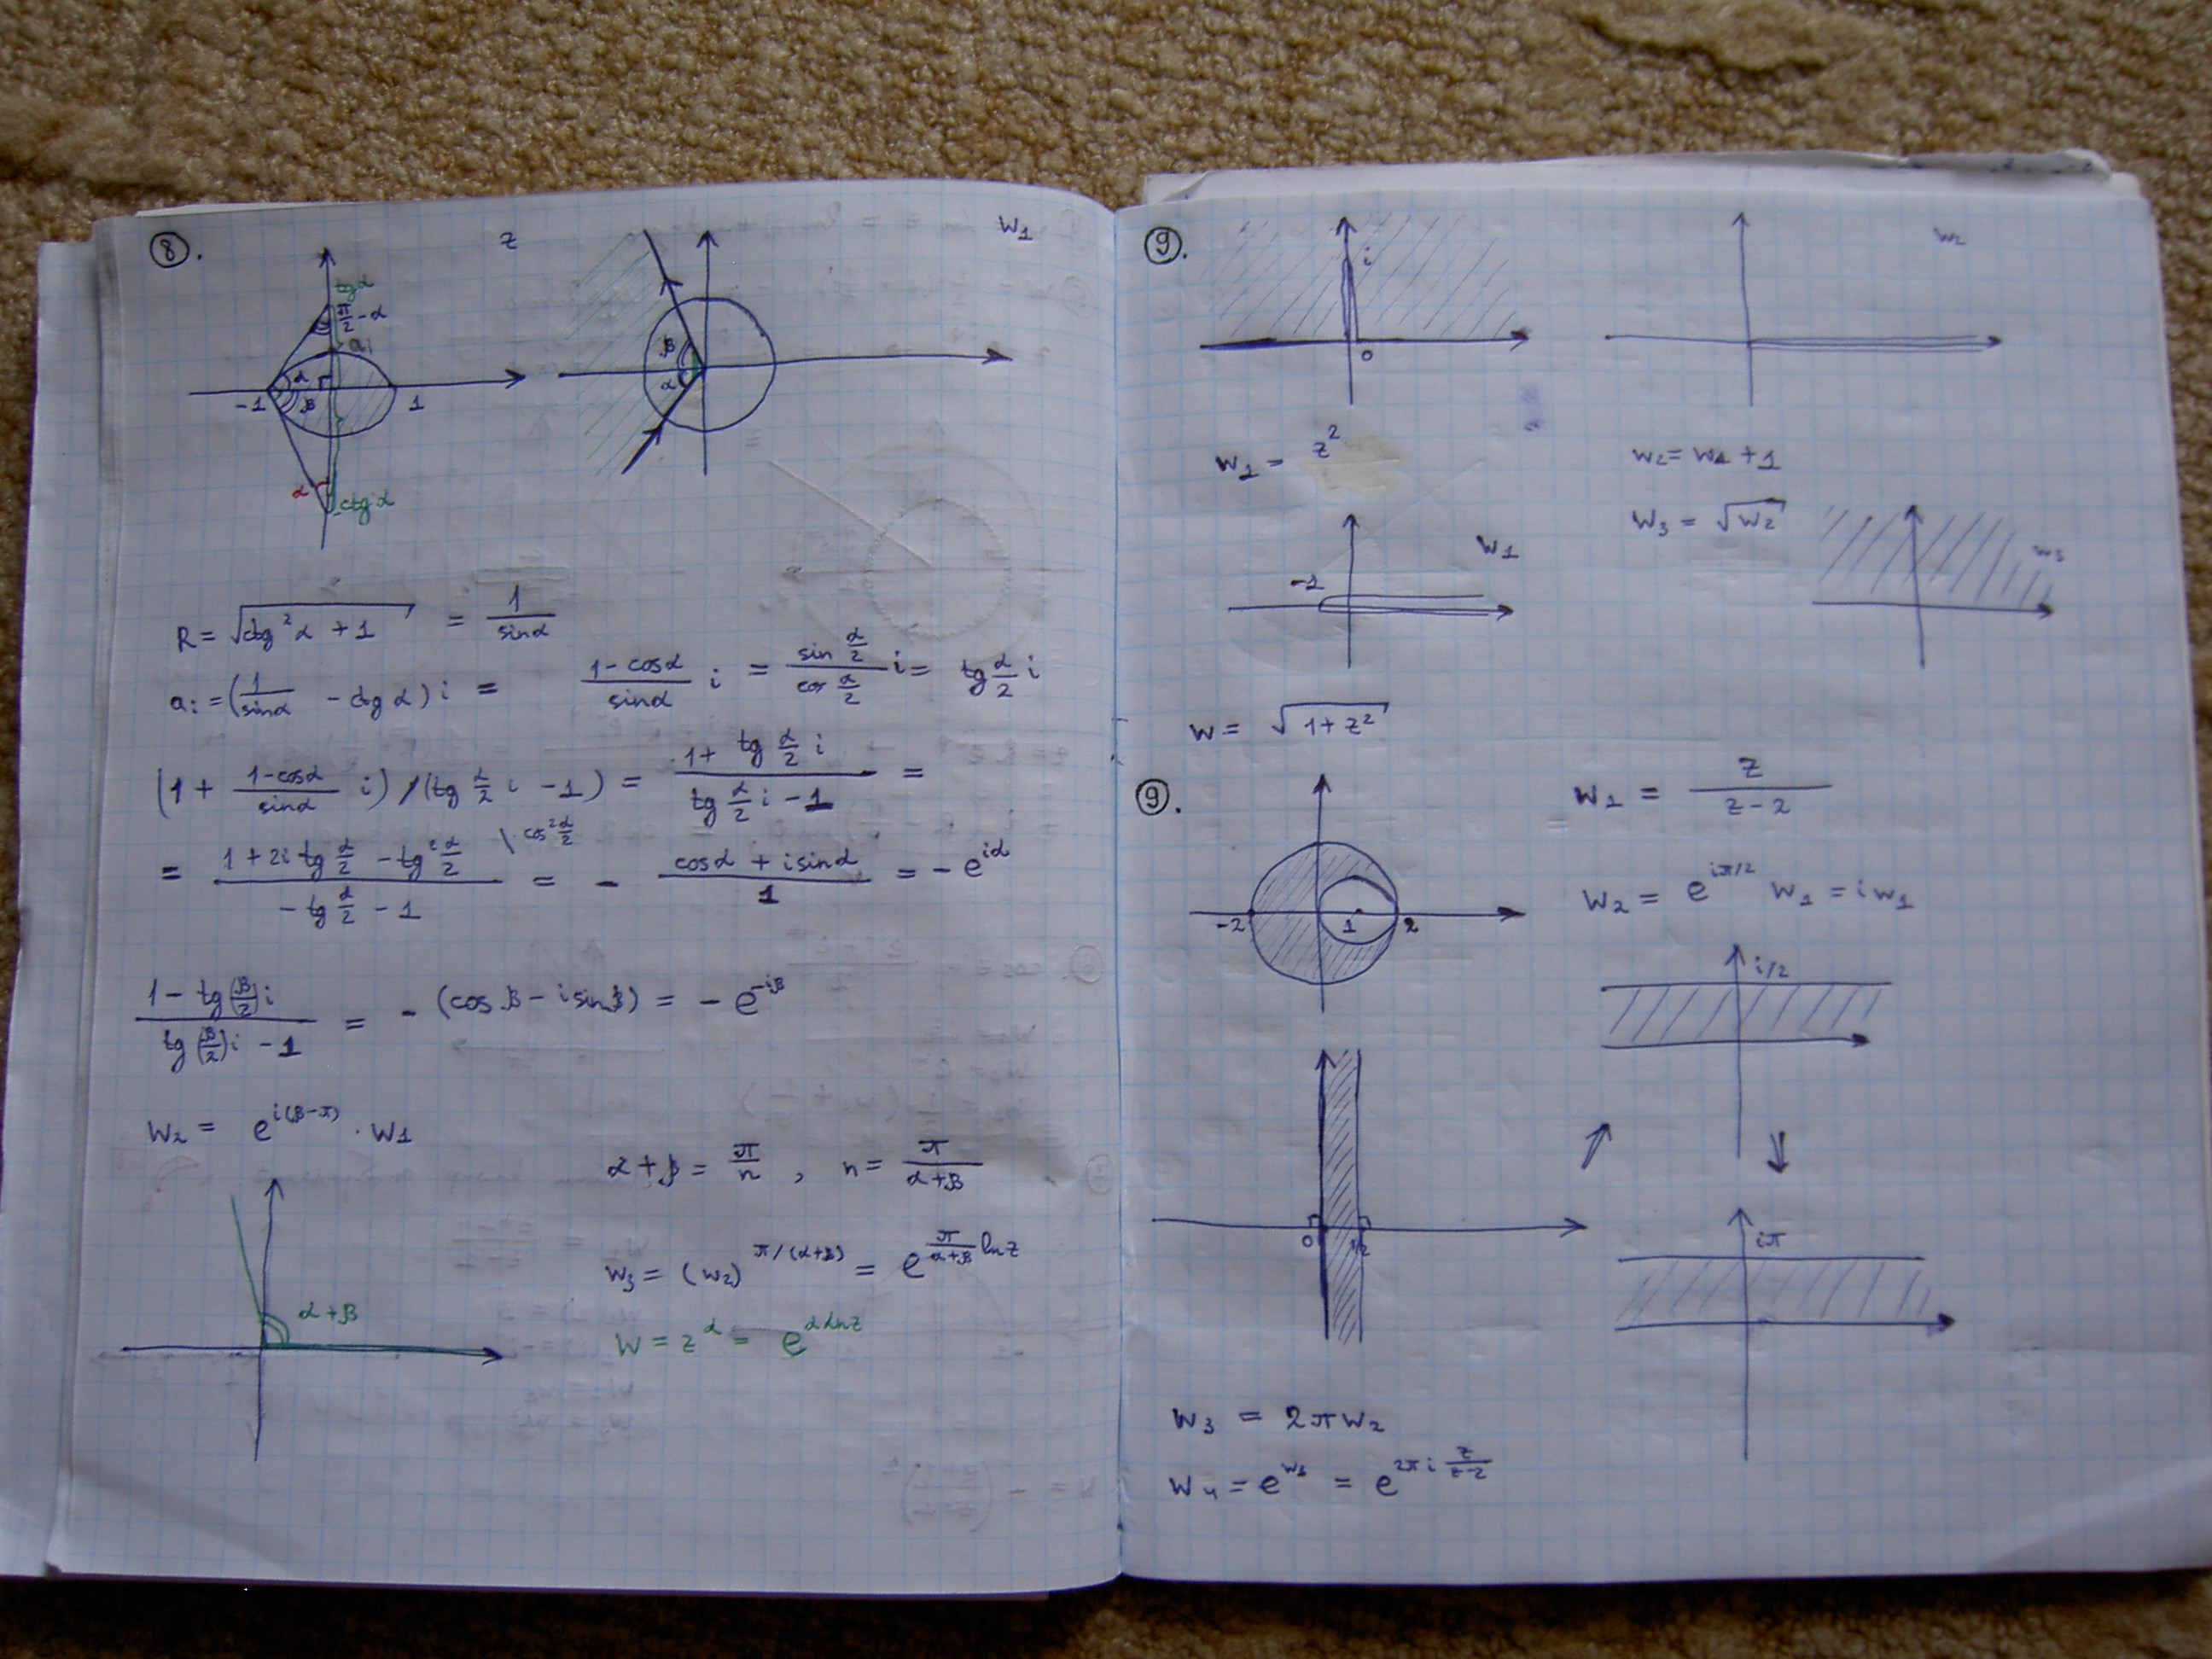 8.
z
w₁
tgα
π/2 - α
ai
α
β
-1
1
α
ctgα
β
α
R = √(ctg²α + 1) = 1/sinα
ai = (1/sinα - ctgα) i = (1-cosα)/sinα i = (sin α/2)/(cos α/2) i = tg α/2 i
(1 + (1-cosα)/sinα i) / (tg α/2 i - 1) = (1 + tg α/2 i)/(tg α/2 i - 1) =
= (1 + 2i tg α/2 - tg² α/2)/(-tg α/2 - 1) \ ·cos² α/2 = - (cosα + i sinα)/1 = - e^{iα}
(1 - tg(β/2)i)/(tg(β/2)i - 1) = - (cosβ - i sinβ) = - e^{-iβ}
w₂ = e^{i(β-π)} · w₁
α + β = π/n , n = π/(α+β)
α + β
w₃ = (w₂)^{π/(α+β)} = e^{π/(α+β) ln z}
w = z^α = e^{α ln z}
9.
i
0
w₂
w₁ = z²
w₂ = w₁ + 1
w₃ = √w₂
w₃
-1
w₁
w = √(1+z²)
9.
w₁ = z/(z-2)
-2
1
2
w₂ = e^{iπ/2} w₁ = i w₁
i/2
0
1/2
iπ
w₃ = 2πw₂
w₄ = e^{w₃} = e^{2πi z/(z-2)}